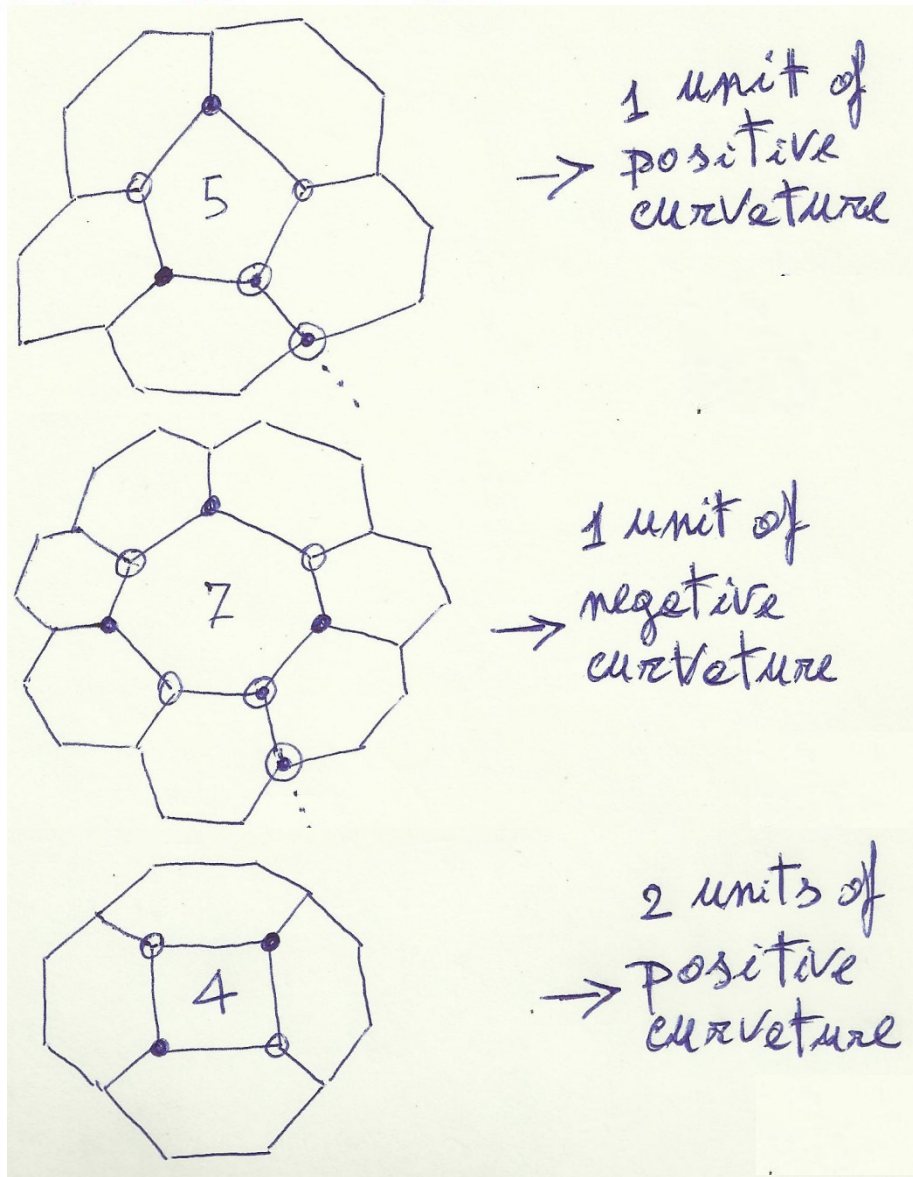 5
→ 1 unit of
positive
curvature
7
→ 1 unit of
negative
curvature
4
→ 2 units of
positive
curvature